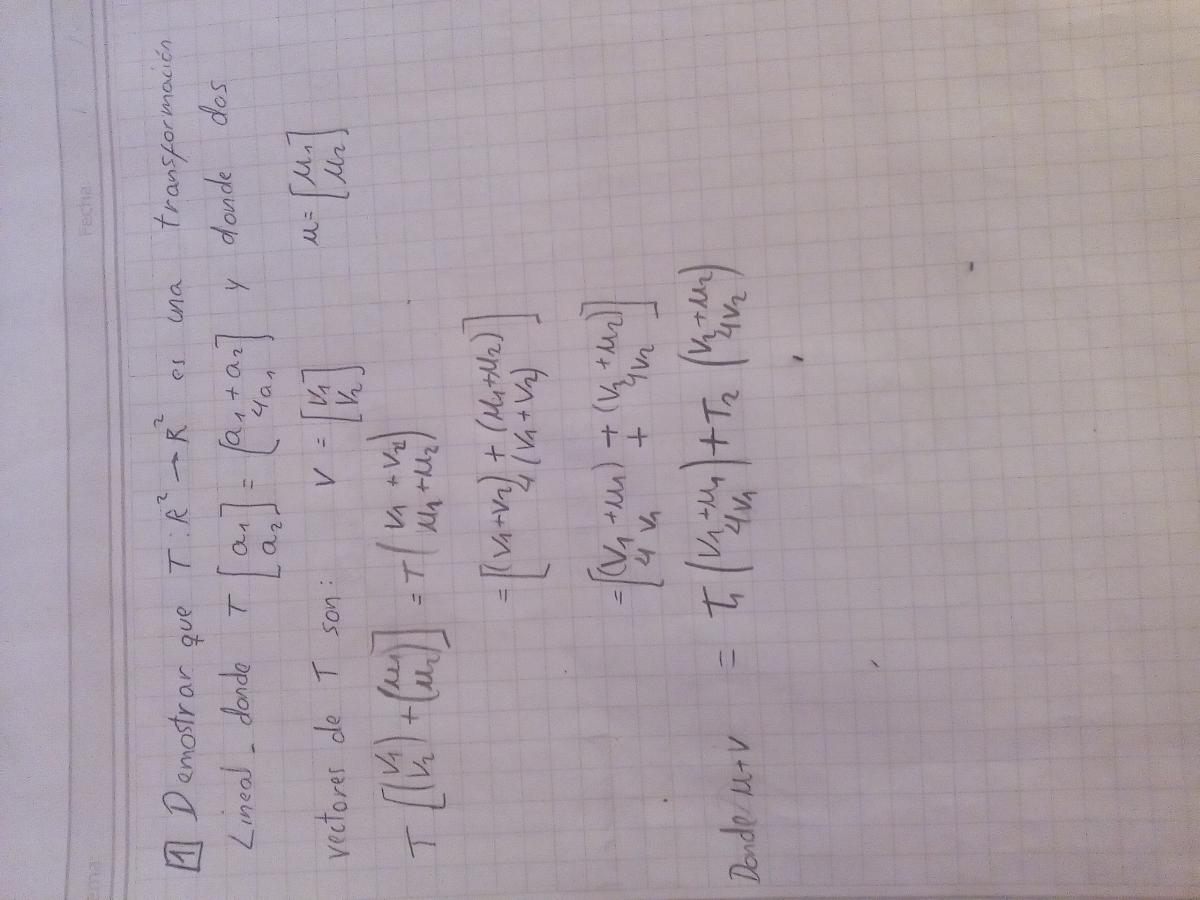 Fecha
ema
1 Demostrar que T: R² → R² es una transformación
Lineal - donde T [a1 a2] = [a1 + a2 4a1] y donde dos
vectores de T son: V = [V1 V2] μ = [μ1 μ2]
T [(V1 V2) + (μ1 μ2)] = T (V1 + V2 μ1 + μ2)
= [(V1 + V2) + (μ1 + μ2) 4(V1 + V2)]
= [(V1 + μ1) + (V2 + μ2) 4V1 + 4V2]
Donde μ + V = T1 (V1 + μ1 4V1) + T2 (V2 + μ2 4V2)